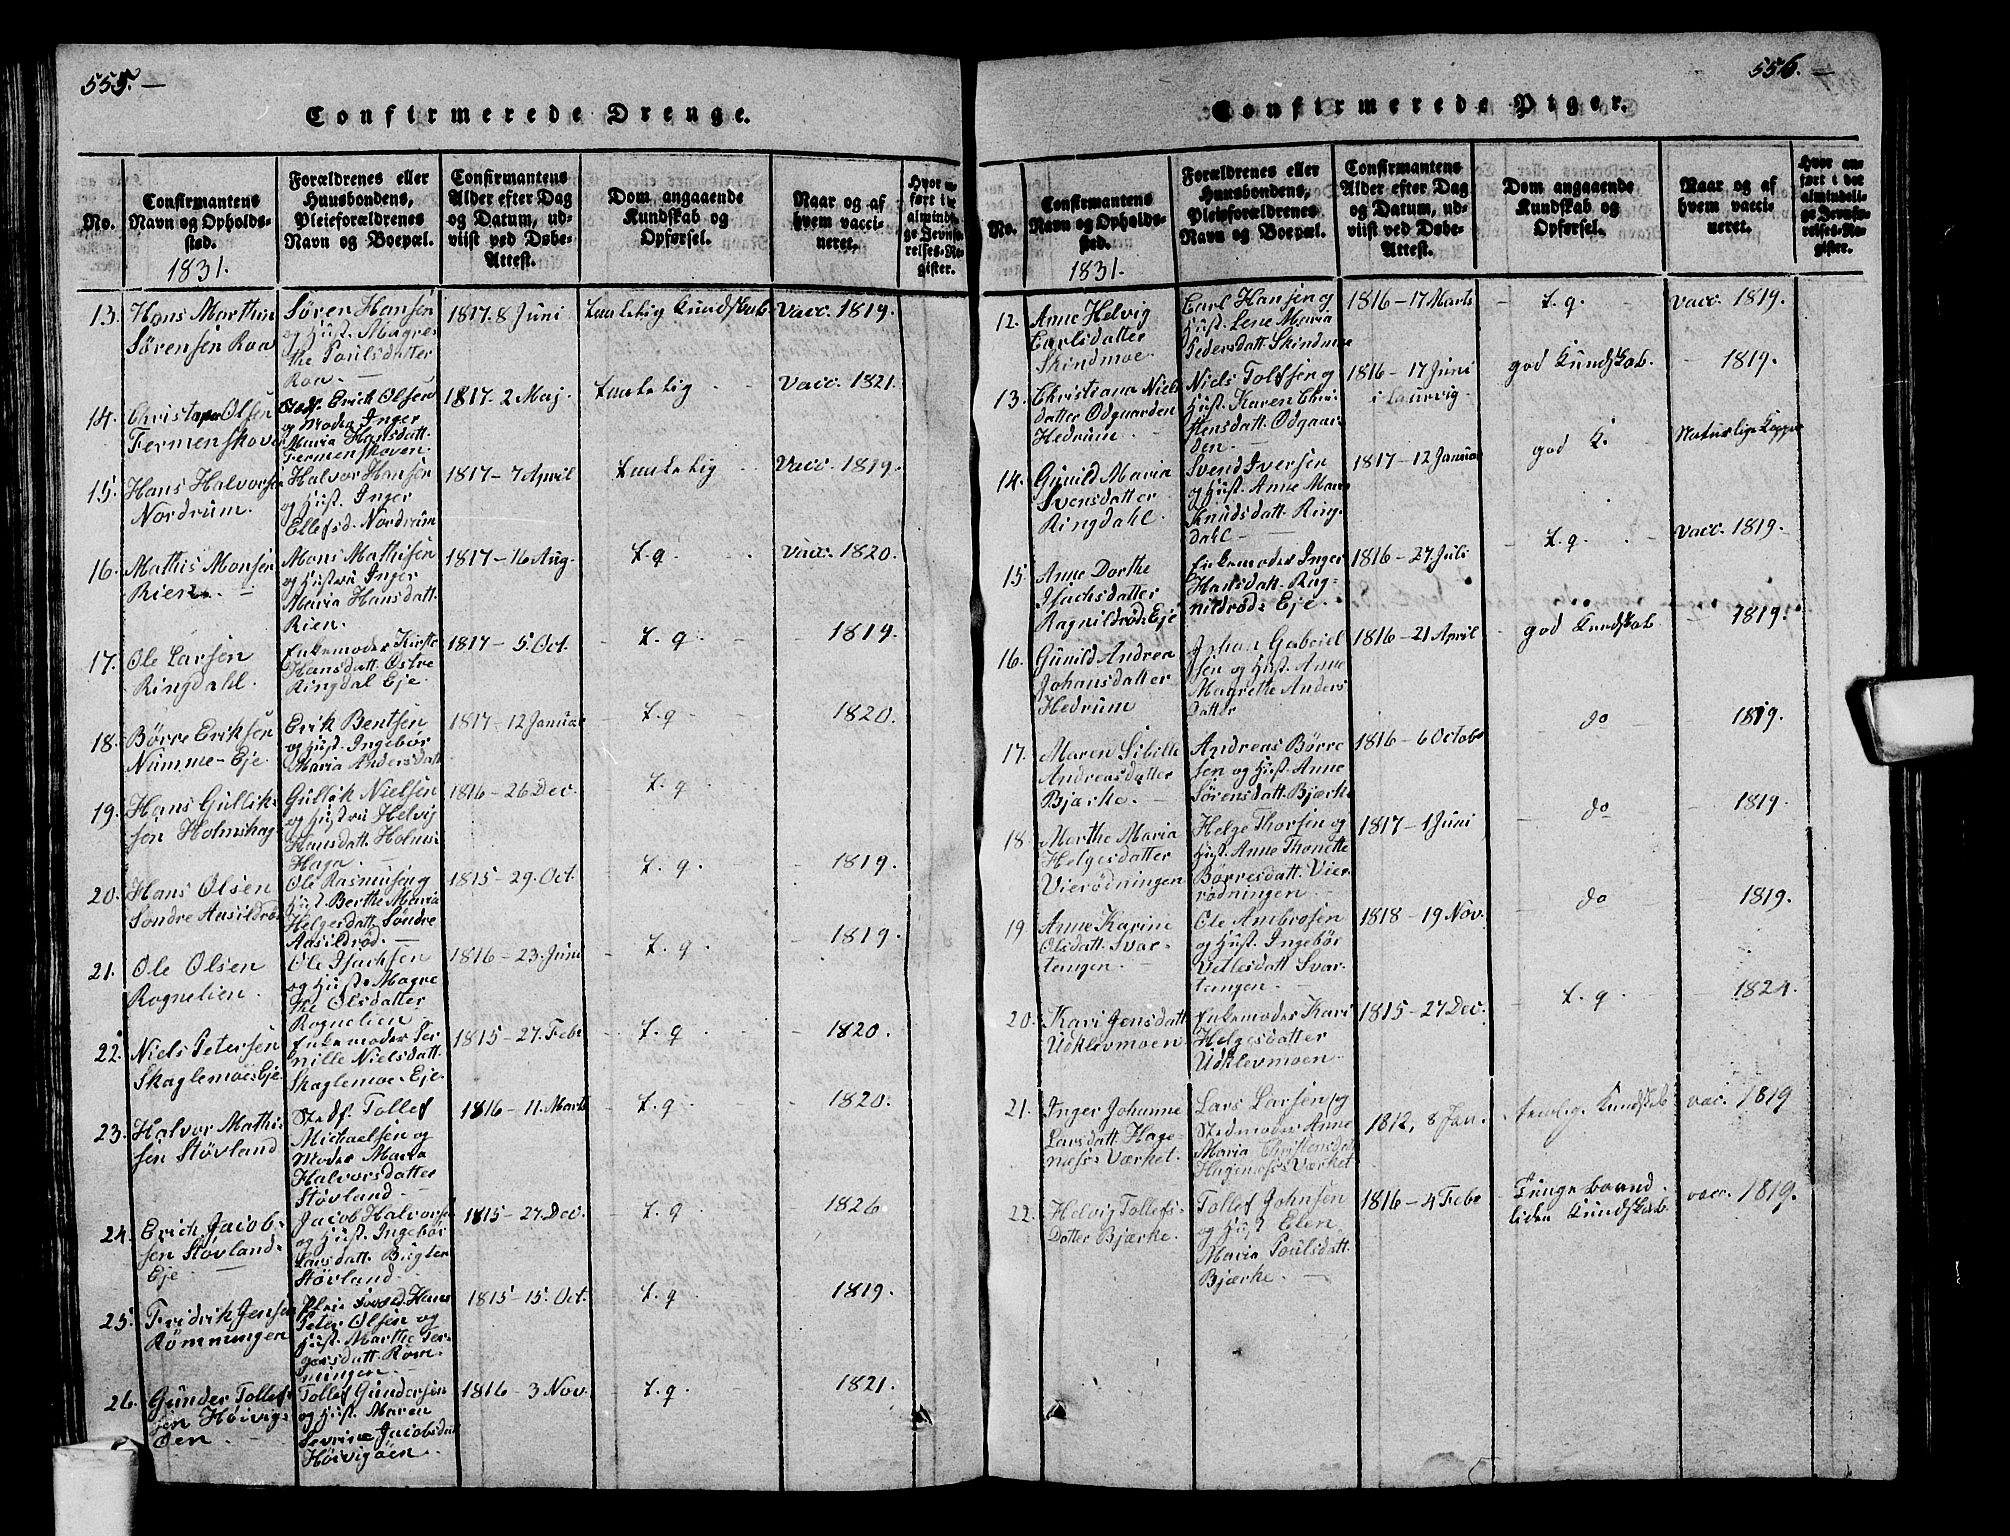 555.—
Confirmerede Drenge.
No.
Confirmantens
Navn og Opholds-
sted.
1831.
Forældrenes eller
Huusbondens,
Pleieforældrenes
Navn og Boepæl.
Confirmantens
Alder efter Dag
og Datum, ud-
viist ved Døbe-
Attest.
Dom angaaende
Kundskab og
Opførsel.
Naar og af
hvem vacci-
neret.
Hvor an-
ført i det
almindeli-
ge Jevnfø-
relses-Re-
gister.
13. Hans Marthin
Sörensen Roa
Sören Hansen
og Hust. Magre
the Poulsdatter
Roa.—
1817. 8 Juni
taalelig Kundskab.
Vacc. 1819.
14. Christopher Olsen
Fermenskoven
Stedf. Erich Olsen
og Moder Inger
Maria Hansdatt.
Fermenskoven.
1817- 2 Maj.
taalelig
Vacc. 1821.
15. Hans Halvorsen
Nordrum.
Halvor Hansen
og Hust. Inger
Ellefsd. Nordrum
1817- 7 April
taalelig
Vacc. 1819.
16. Mathis Monsen
Rien.
Mons Mathisen
og Hustru Inger
Maria Hansdatt.
Rien.
1817- 16 Aug.
t. g
Vacc. 1820.
17. Ole Larsen
Ringdahl.
Enkemoder Kirsti
Hansdatt. Østre
Ringdal Eje.
1817- 5. Oct.
t. g
- 1819.
18. Börre Eriksen
Numme-Eje
Erik Bentsen
og Hust. Ingebör
Maria Andersdatt
1817- 12 Januar
t. g
- 1820.
19. Hans Gullik-
sen Holmshag
Gullik Nielsen
og Hustru Helvig
Hansdatt. Holms
Haga.
1816- 26 Dec.
t. g.
20. Hans Olsen
Sondre Aasildröd
Ole Rasmusen og
Hust. Berthe Maria
Helgesdatt. Söndre
Aasildröd.—
1815- 29. Oct.
t. g.
- 1819.
21. Ole Olsen
Rognelien.
Ole Isachsen
og Hust. Magre
the Olsdatter
Rognelien—
1816- 23. Juni
t. g.
- 1819.
22. Niels Petersen
Skaglemoes Eje
Enkemoder Per
nille Nielsdatt.
Skaglemoe-Eje.
1815- 27. Febr
t. g.
- 1820.
23. Halvor Mathi-
sen Stövland
Stedf. Tollef
Michaelsen og
Moder Maria
Halvorsdatter
Stövland.—
1816- 11. Marts
t. g
- 1820.
24. Erich Jacob-
sen Stövland-
Eje
Jacob Halvorsen
og Hust. Ingebör
Larsdatt.
Stövland.
1815- 27 Dec.
t. g
1826.
25. Fridrik Jensen
Römmingen
Hans
Peter Olsen og
Hust. Marthe Tor-
gersdatt. Röm-
mingen—
1815- 15. Oct.
t. g.
- 1819.
26. Gunder Tollef-
sen Höivigs
Öen
Tollef Gundersen
og Hust. Maren
Sevrine Jacobsdatt
Höivigöen.
1816 - 3 Nov.
t. g
- 1821.
556.—
Confirmerede Piger.
No.
Confirmantens
Navn og Opholds-
sted.
1831.
Forældrenes eller
Huusbondens,
Pleieforældrenes
Navn og Boepæl.
Confirmantens
Alder efter Dag
og Datum, ud-
viist ved Døbe-
Attest.
Dom angaaende
Kundskab og
Opførsel.
Naar og af
hvem vacci-
neret.
Hvor an-
ført i det
almindeli-
ge Jevnfø-
relses-Re-
gister.
12. Anne Helvig
Carlsdatter
Skindmoe.
Carl Hansen og
Hust. Lene Maria
Pedersdatt. Skindmoe
1816- 17 Marts
- t. g. -
Vacc. 1819.
13. Christiana Niels
datter Odgaarden
Hedrum —
Niels Tolfsen og
Hust. Karen Chri
stensdatt. Odgaar
den.—
1816- 17 Juni
i Laurvig.
god Kundskab.
- 1819.
14. Gunild Maria
Svensdatter
Ringdahl.
Svend Iversen
og Hust. Anne Maria
Knudsdatt. Ring
dahl —
1817- 12 Januar
god K.
Naturlige Kopper
15. Anne Dorthe
Isachsdatter
Ragnildröds Eje
Enkemoder Inger
Hansdatt. Rag-
nildröds Eje.
1816- 27. Juli
- t. g. -
Vacc. 1819.
16. Gunild Andrea
Johansdatter
Hedrum
Johan Gabriel
sen og Hust. Anne
Magrethe Anders
datter
1816- 21 April
god Kundskab
- 1819.
17. Maren Sibille
Andreasdatter
Bjærke.—
Andreas Börre
sen og Hust. Anne
Sörensdatt. Bjærke
1816- 6 Octobr
do
- 1819.
18 Marthe Maria
Helgesdatter
Vierödningen
Helge Thorsen og
Hust. Anne Thonette
Börresdatt. Vier
rödningen —
1817- 1 Juni
do
- 1819.
19 Anne Karine
Olsdatt. Svar-
tangen.—
Ole Ambrosen
og Hust. Ingebör
Vetlesdatt Svar-
tangen.—
1818- 19 Nov.
- do
- 1819.
20. Kari Jensdatt
Udklevmoen
Enkemoder Kari
Helgesdatter
Udklevmoen
1815- 27 Dec.
- t. g.
- 1824.
21. Inger Johanne
Larsdatt. Hage-
næs-Værket.
Lars Larsen og
Stedmoder Anne
Maria Christensdatt
Hagenæs-Værket
1812, 8 Jan.
temlig Kundskab
vac. 1819
22. Helvig Tollefs
Datter Bjærke.
Tollef Johnsen
og Hust Elen
Maria Poulsdatt.
Bjærke —
1816- 4 Febr
Tungebaand.
liden Kundskab.
vacc. 1819.